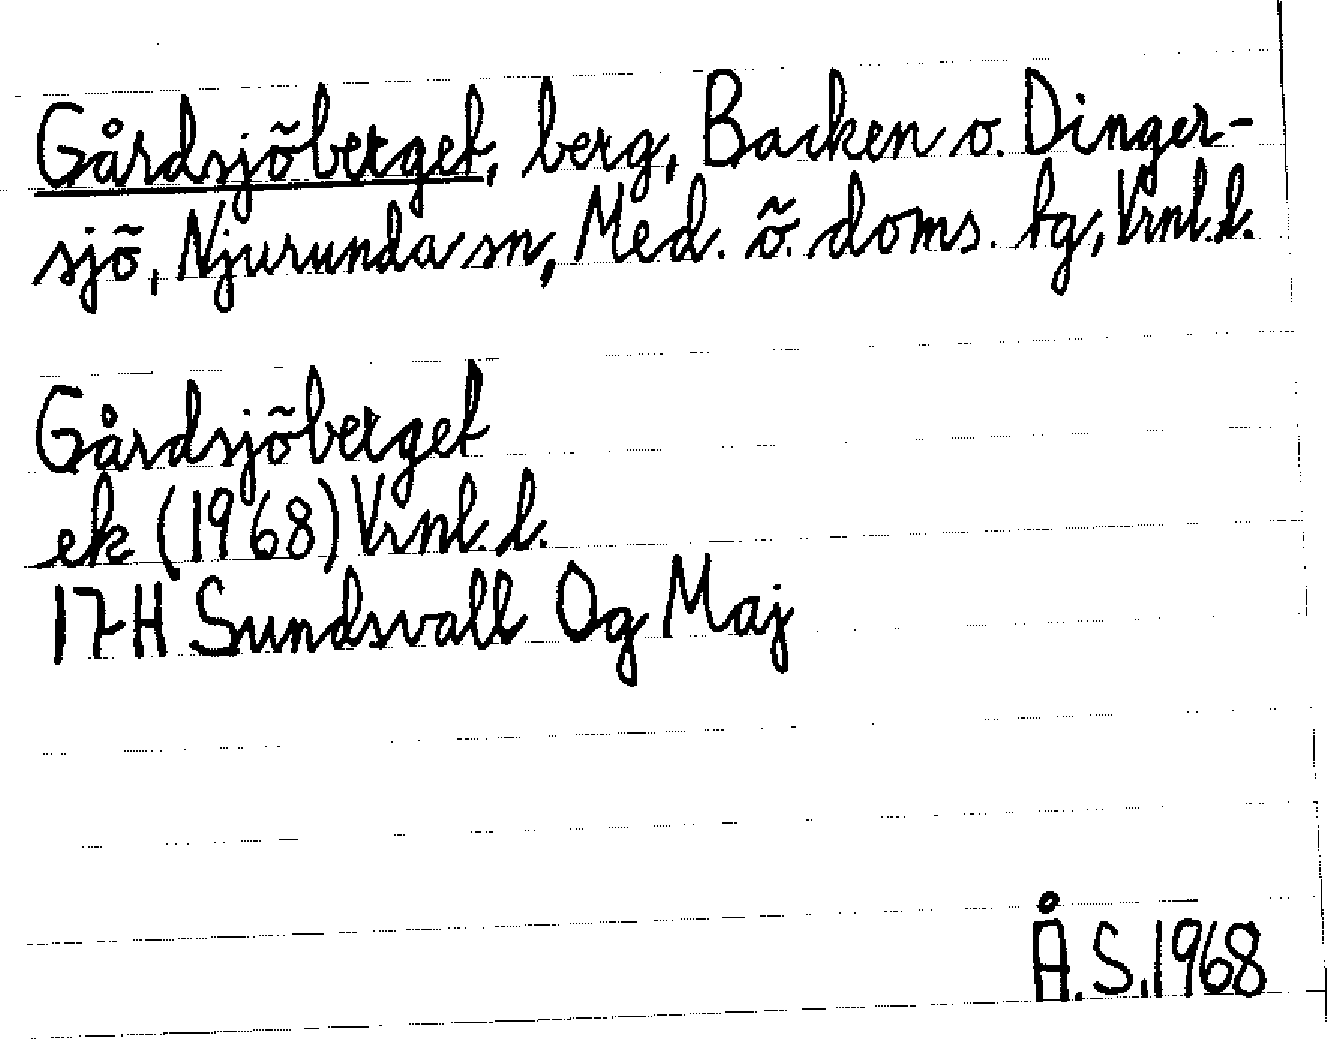 Gårdsjöberget, berg, Backen o. Dinger-
sjö, Njurunda sn, Med. ö. doms. tg, Vrnl.l.
Gårdsjöberget
ek (1968) Vrnl. l.
17H Sundsvall Og Maj
Å.S.1968